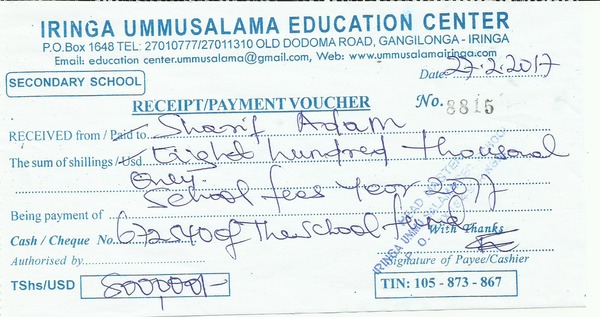 IRINGA UMMUSALAMA EDUCATION CENTER
P.O.Box 1648 TEL: 27010777/27011310 OLD DODOMA ROAD, GANGILONGA - IRINGA
Email: education center.ummusalama@gmail.com, Web: www.ummusalamairinga.com
SECONDARY SCHOOL
Date 27.2.2017
RECEIPT/PAYMENT VOUCHER
No. 8815
RECEIVED from / Paid to Sharif Adam
The sum of shillings / Usd Eight hundred thousand
only.
School fees Year 2017
Being payment of
Cash / Cheque No. 632540 of The School fund
With Thanks
Authorised by
Signature of Payee/Cashier
TShs/USD 800000/-
TIN: 105 - 873 - 867
HEAD MASTER
IRINGA UMMUSALAMA